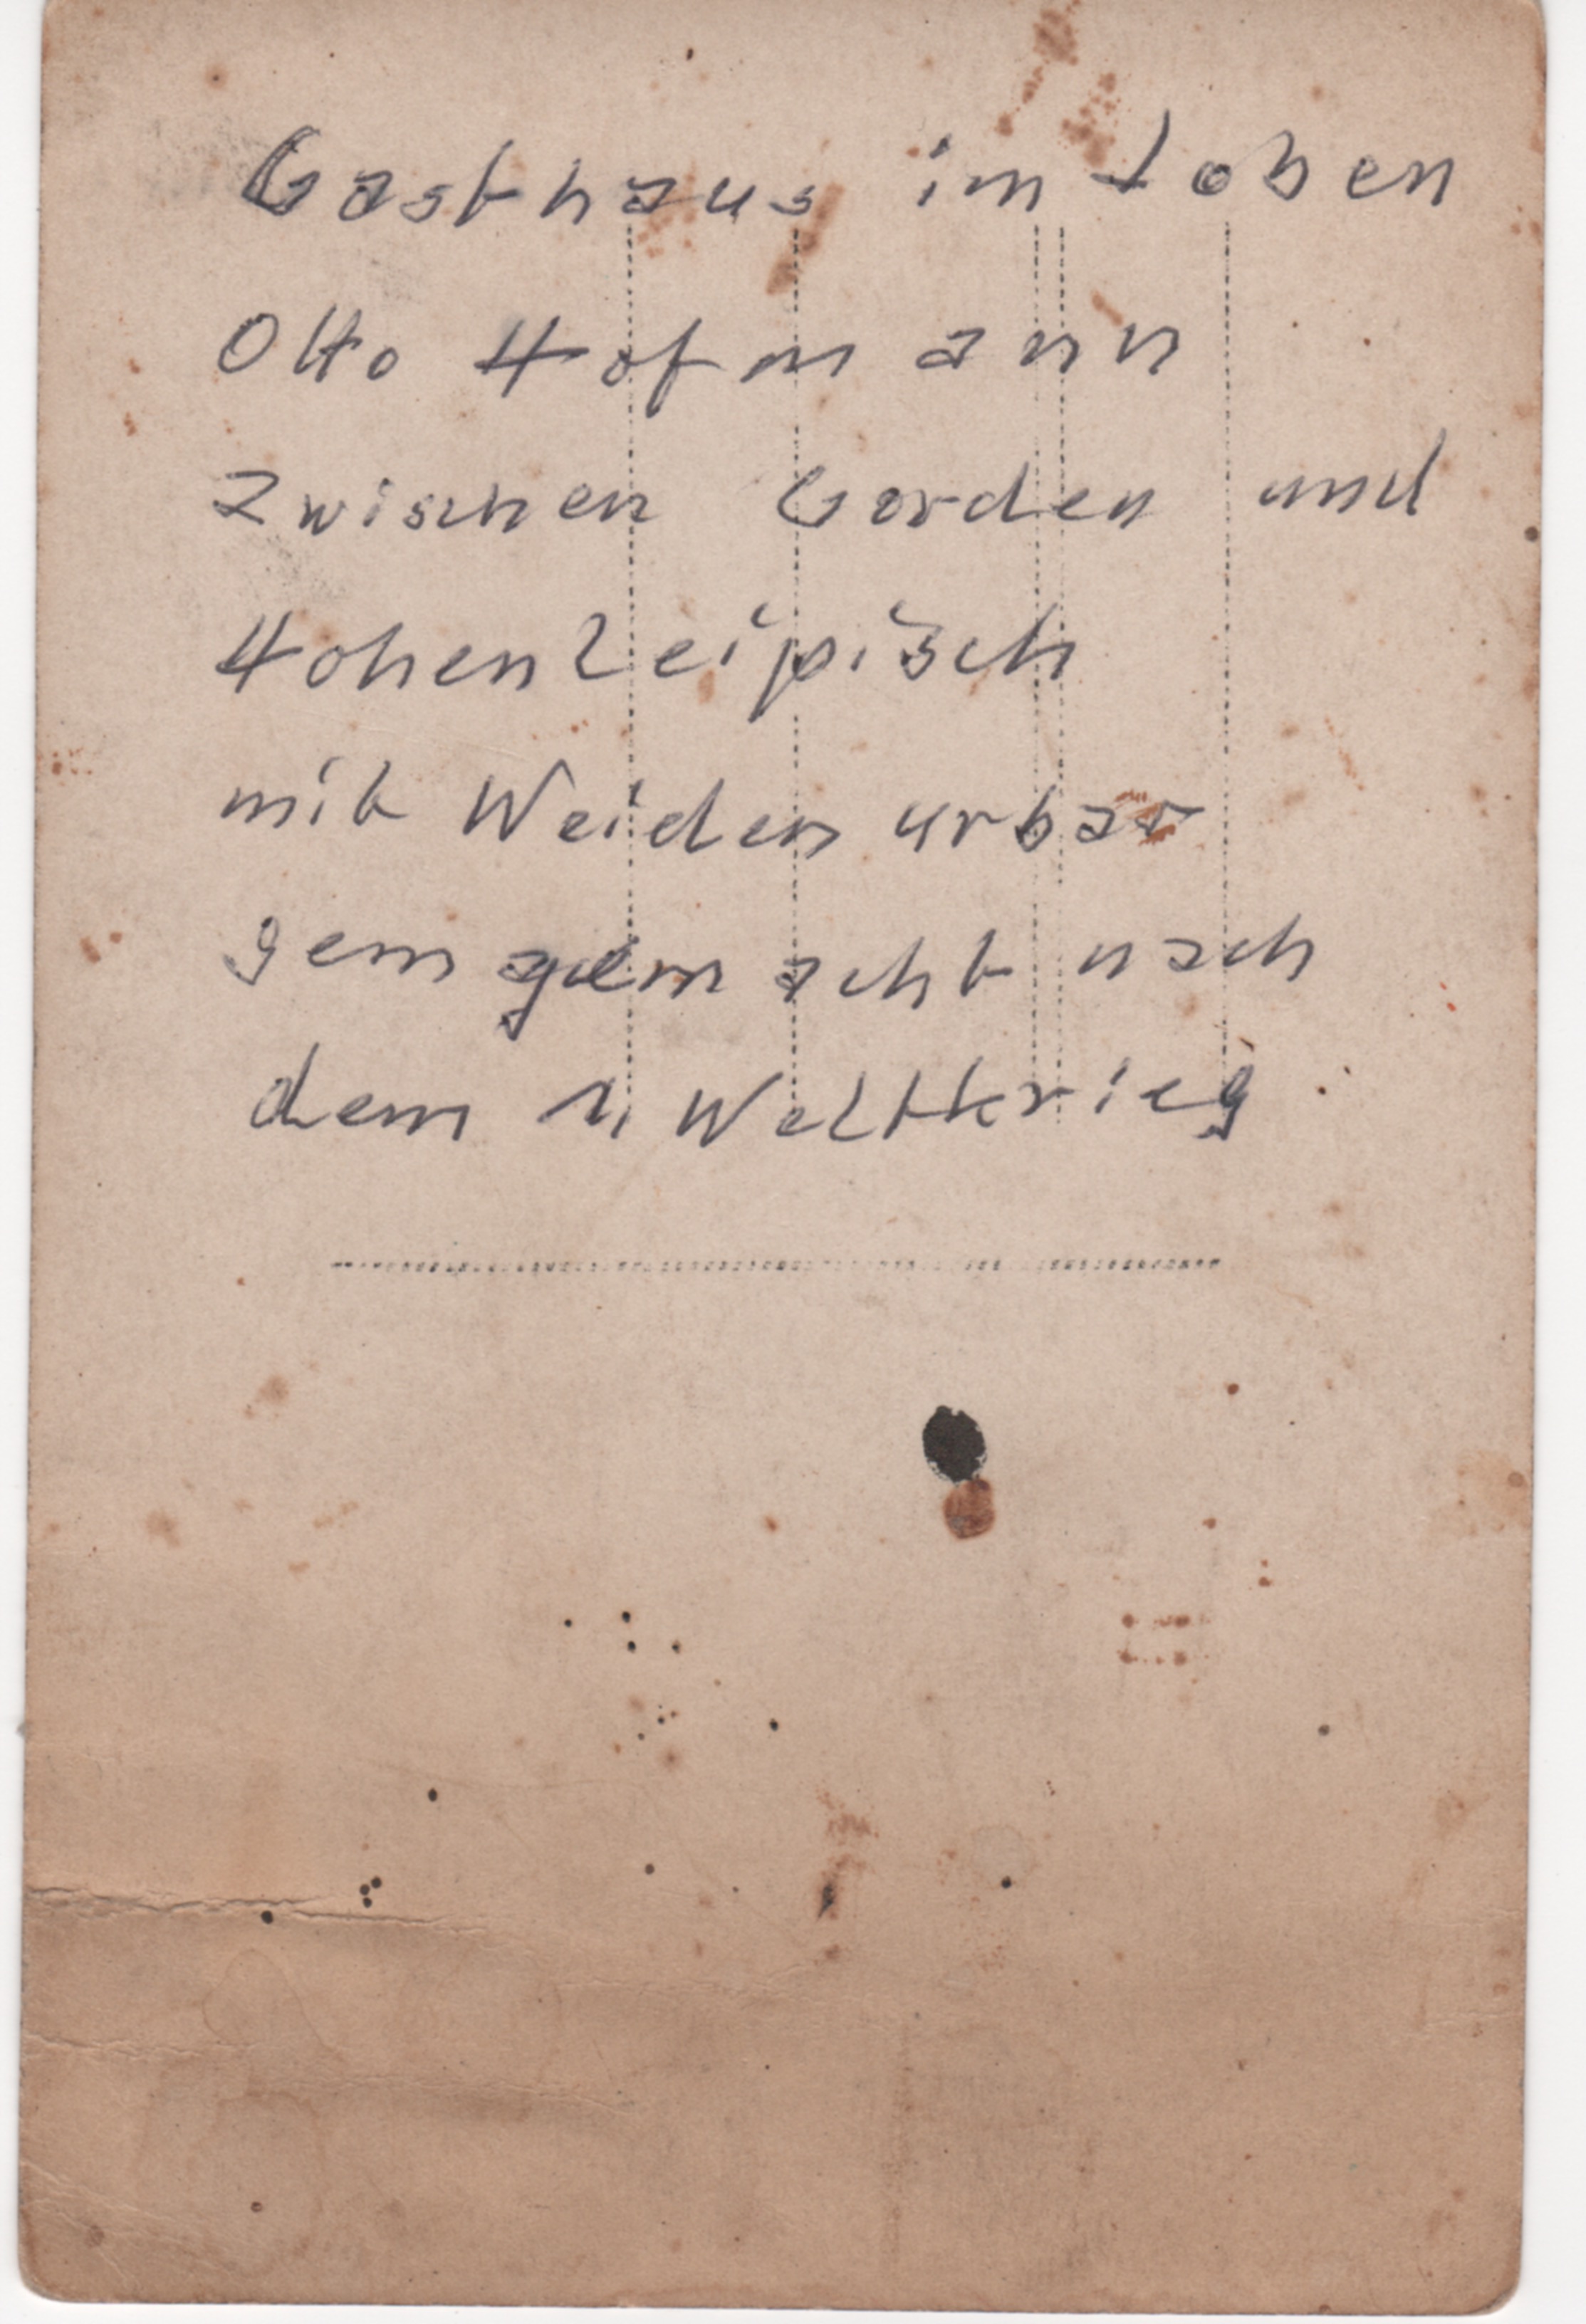 Gasthaus im Loben
Otto Hofmann
zwischen Gorden und
Hohenleipisch
mit Weiden urbar
gem gemacht nach
dem 1. Weltkrieg